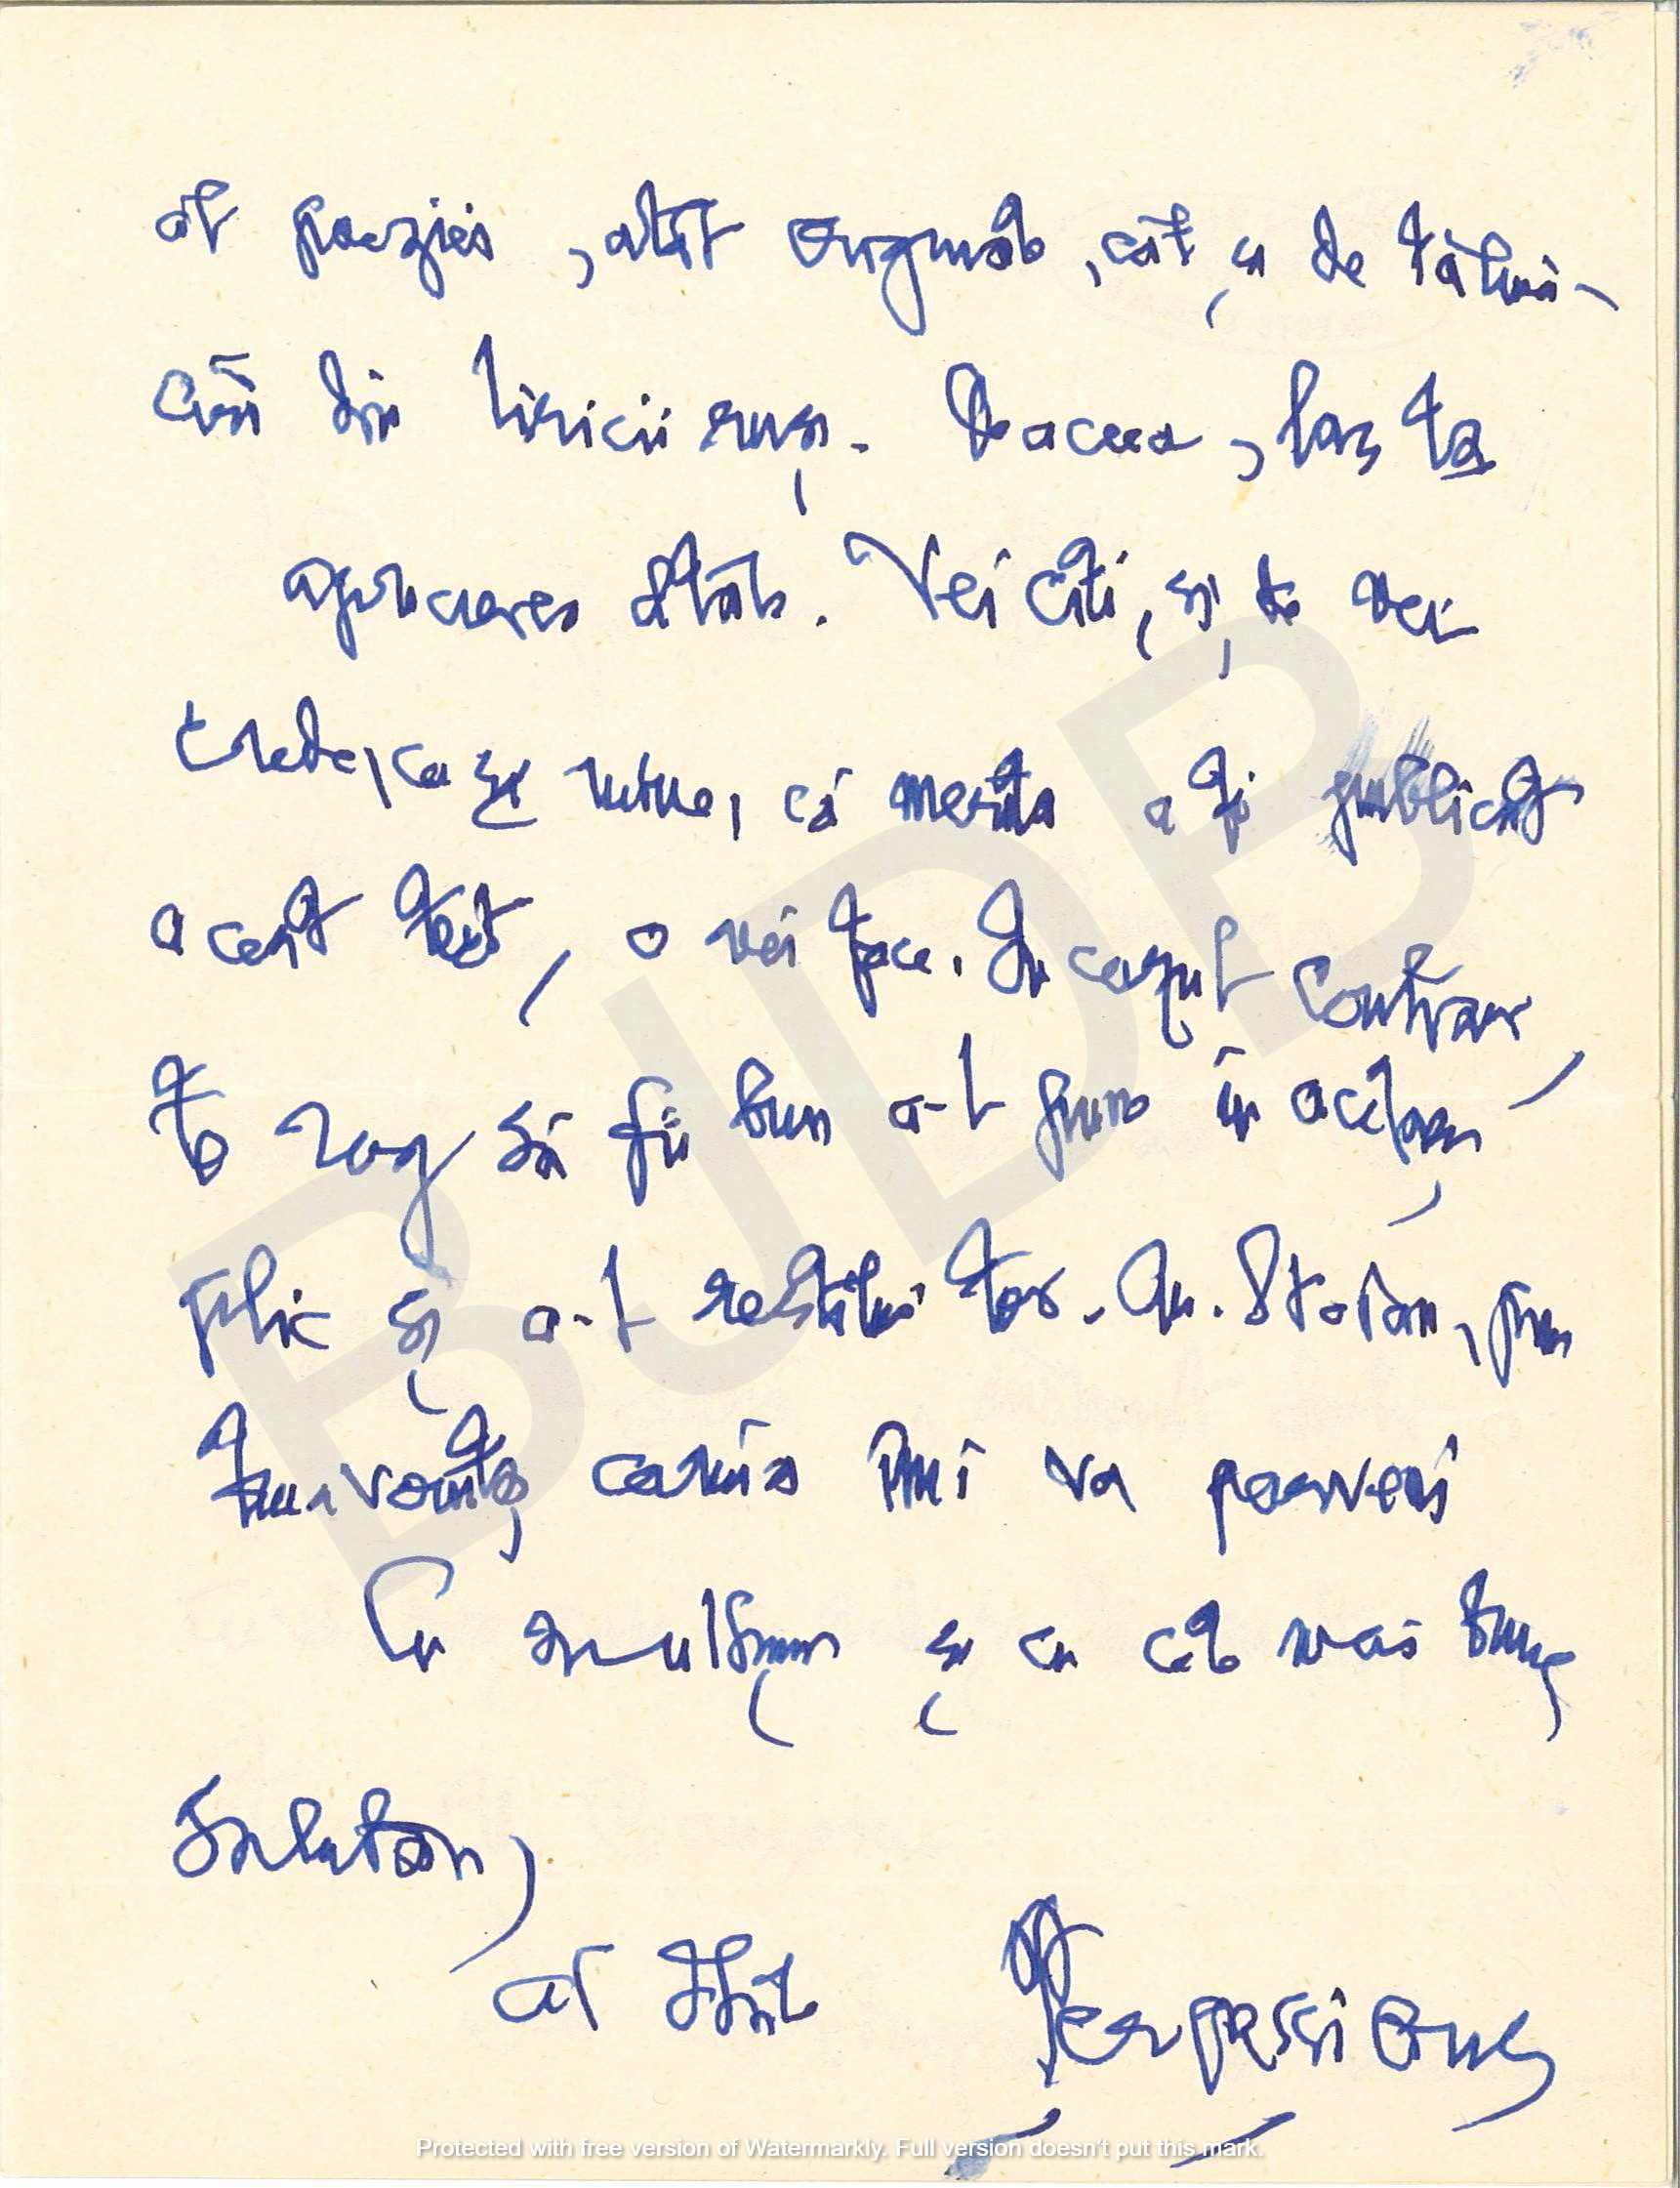 al poeziei, atît originale, cît și de tălmă-
ciri din liricii ruși. De aceea, las la
aprecierea d-tale. Vei citi, și, de vei
crede, ca și mine, că merita a fi publicat
acest text, o vei face. In cazul contrar,
te rog să fii bun a-l pune în același
plic și a-l restitui tov. On. Stoian, prin
bunavoința căruia îmi va parveni
Cu mulțumiri și cu cele mai bune
salutări,
al d-tale Perpessicius
BJDB
Protected with free version of Watermarkly. Full version doesn't put this mark.